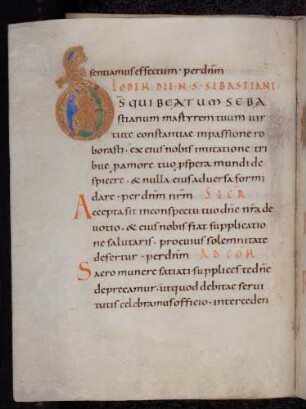 sentiamus effectum · per dnm
EODEM DIE · N · S · SEBASTIANI ·
D̄S QUI BEATUM SEBA
stianum martyrem tuum vir
tute constantiae in passione ro
borasti · ex eius nobis imitatione tri
bue p amore tuo pspera mundi de
spicere · & nulla eius adversa formi
dare · per dnm nrm SECR̄
Accepta sit in conspectu tuo dn̄e nr̄a de
votio · & eius nobis fiat supplicatio
ne salutaris · pro cuius solemnitate
defertur · per dnm AD COM̄
Sacro munere satiati · supplices te dn̄e
deprecamur · ut quod debitae servi
tutis celebramus officio · interceden